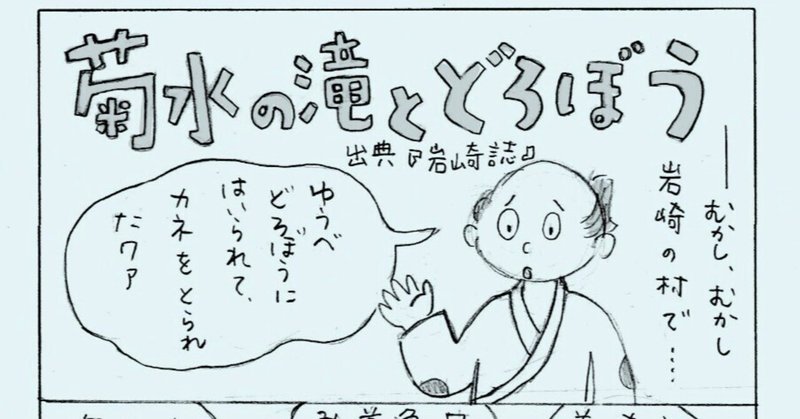 菊水の滝とどろぼう
出典『岩崎誌』
――むかし、むかし
岩崎の村で……
ゆうべ
どろぼうに
はいられて、
カネをとられ
たワァ